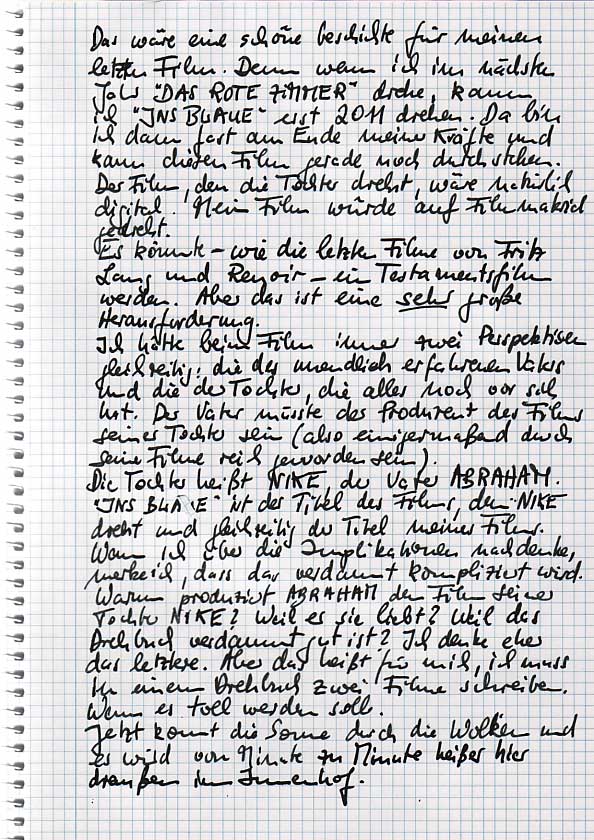 Das wäre eine schöne Geschichte für meinen
letzten Film. Denn wenn ich im nächsten
Jahr "DAS ROTE ZIMMER" drehe, kann
ich "INS BLAUE" erst 2011 drehen. Da bin
ich dann fast am Ende meiner Kräfte und
kann diesen Film gerade noch durchstehen.
Der Film, den die Tochter dreht, wäre natürlich
digital. Mein Film würde auf Filmmaterial
gedreht.
Es könnte – wie die letzten Filme von Fritz
Lang und Renoir – ein Testamentsfilm
werden. Aber das ist eine sehr große
Herausforderung.
Ich hätte beim Film immer zwei Perspektiven
gleichzeitig: die des unendlich erfahrenen Vaters
und die der Tochter, die alles noch vor sich
hat. Der Vater müsste der Produzent des Films
seiner Tochter sein (also einigermaßend durch
seine Filme reich geworden sein).
Die Tochter heißt NIKE, der Vater ABRAHAM.
"INS BLAUE" ist der Titel des Films, den NIKE
dreht und gleichzeitig der Titel meines Films.
Wenn ich über die Implikationen nachdenke,
merke ich, dass das verdammt kompliziert wird.
Warum produziert ABRAHAM den Film seiner
Tochter NIKE? Weil er sie liebt? Weil das
Drehbuch verdammt gut ist? Ich denke eher
das letztere. Aber das heißt für mich, ich muss
in einem Drehbuch zwei Filme schreiben.
Wenn es toll werden soll.
Jetzt kommt die Sonne durch die Wolken und
es wird von Minute zu Minute heißer hier
draußen im Innenhof.